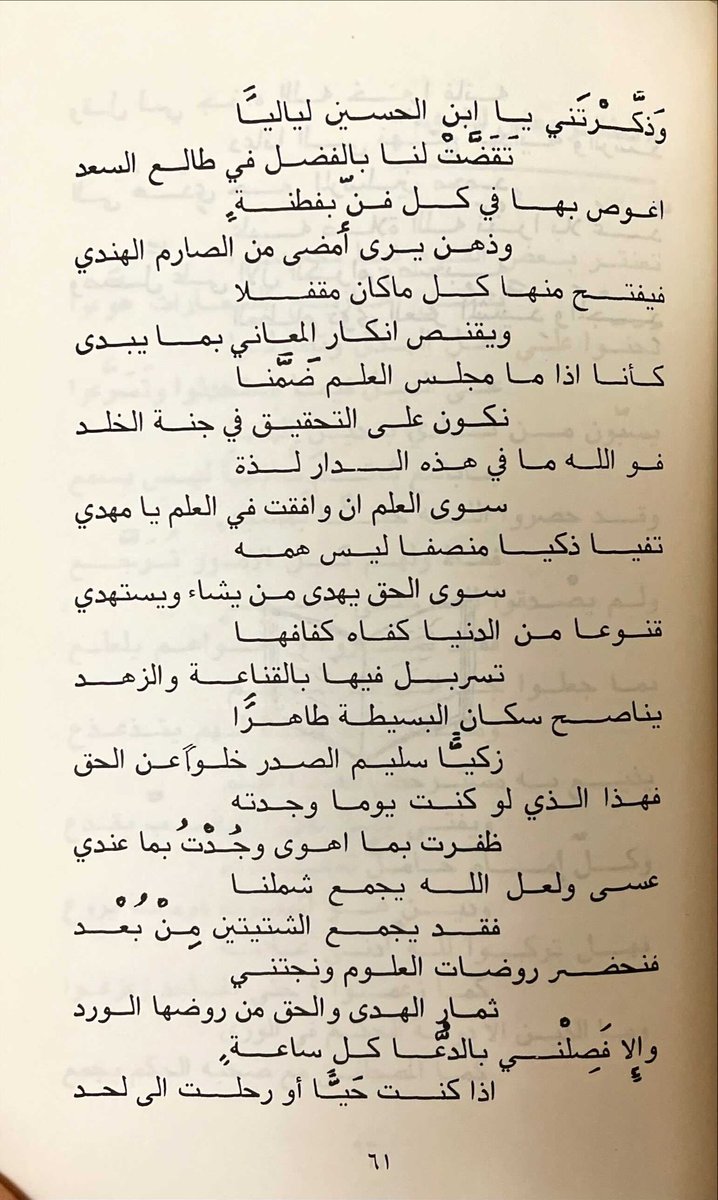 وَذَكَّرْتَني يا ابن الحسين لياليًا
تَقَضَّتْ لنا بالفضل في طالع السعد
اغوص بها في كل فنّ بفطنةٍ
وذهن يرى أمضى من الصارم الهندي
فيفتح منها كل ماكان مقفلا
ويقنص انكار المعاني بما يبدى
كأنا اذا ما مجلس العلم ضَمَّنا
نكون على التحقيق في جنة الخلد
فو الله ما في هذه الدار لذة
سوى العلم ان وافقت في العلم يا مهدي
تفيا ذكيا منصفا ليس همه
سوى الحق يهدى من يشاء ويستهدي
قنوعا من الدنيا كفاه كفافها
تسربل فيها بالقناعة والزهد
يناصح سكان البسيطة طاهرًا
زكيًّا سليم الصدر خلواً عن الحق
فهذا الذي لو كنت يوما وجدته
ظفرت بما اهوى وجُدْتُ بما عندي
عسى ولعل الله يجمع شملنا
فقد يجمع الشتيتين مِنْ بُعْد
فنحضر روضات العلوم ونجتني
ثمار الهدى والحق من روضها الورد
وإلا فَصِلْني بالدُّعَا كل ساعةٍ
اذا كنت حَيًّا أو رحلت الى لحد
٦١